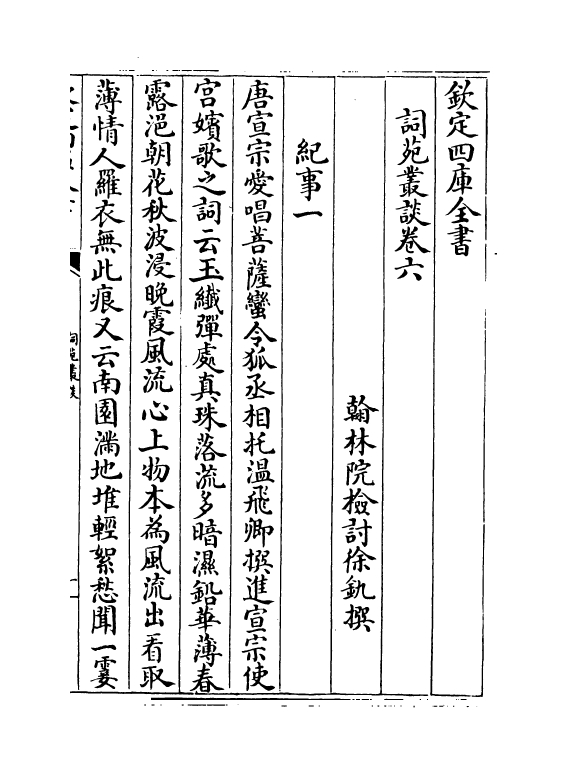 欽定四庫全書
詞苑叢談卷六
翰林院檢討徐釚撰
紀事一
唐宣宗愛唱菩薩蠻令狐丞相托温飛卿撰進宣宗使
宮嬪歌之詞云玉纖彈處真珠落流多暗濕鉛華薄春
露浥朝花秋波浸晚霞風流心上物本為風流出看取
薄情人羅衣無此痕又云南園滿地堆輕絮愁聞一霎
詞苑叢談